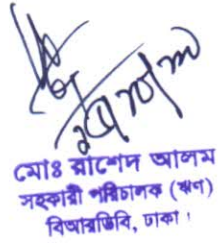 মোঃ রাশেদ আলম
সহকারী পরিচালক (ঋণ)
বিআরডিবি, ঢাকা।